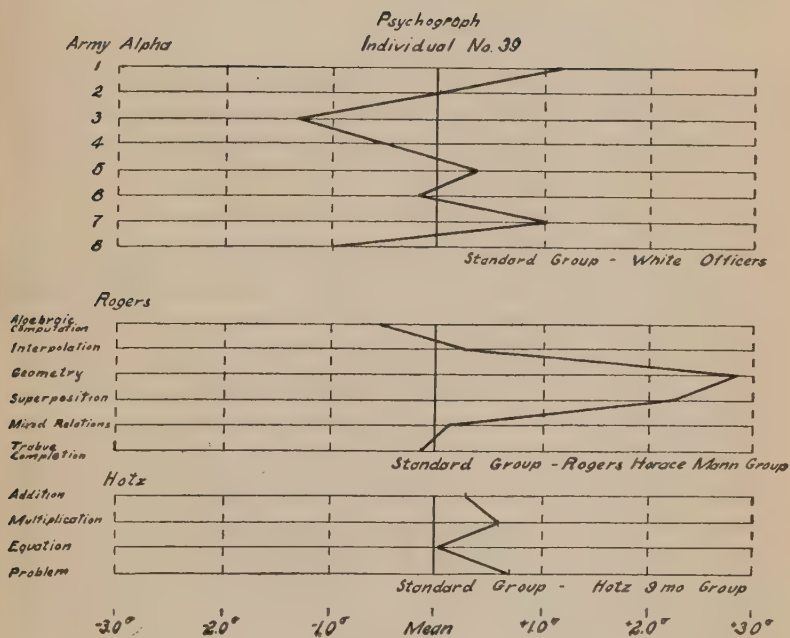 Psychograph
Individual No. 39
Army Alpha
1
2
3
4
5
6
7
8
Standard Group - White Officers
Rogers
Algebraic
Computation
Interpolation
Geometry
Superposition
Mixed Relations
Trabue
Completion
Standard Group - Rogers Horace Mann Group
Hotz
Addition
Multiplication
Equation
Problem
Standard Group - Hotz 9 mo Group
-3.0σ -2.0σ -1.0σ Mean +1.0σ +2.0σ +3.0σ